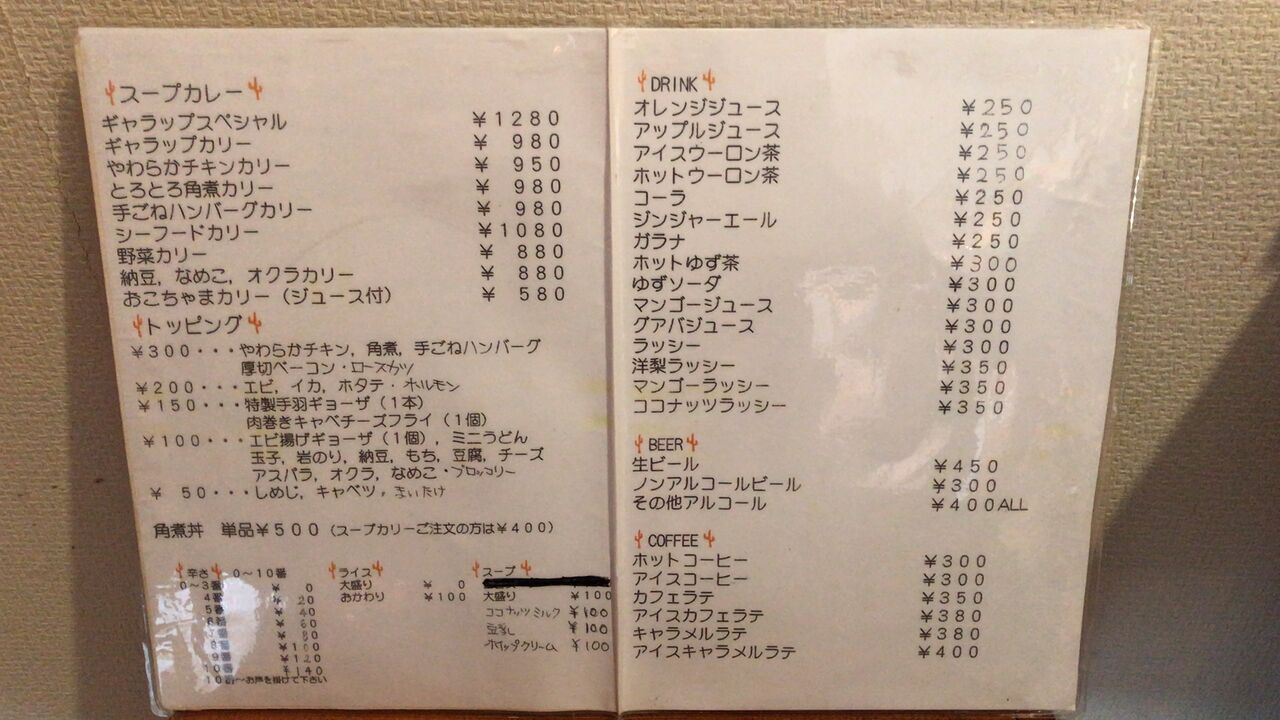 スープカレー
ギャラップスペシャル ￥1280
ギャラップカリー ￥ 980
やわらかチキンカリー ￥ 950
とろとろ角煮カリー ￥ 980
手ごねハンバーグカリー ￥ 980
シーフードカリー ￥1080
野菜カリー ￥ 880
納豆，なめこ，オクラカリー ￥ 880
おこちゃまカリー（ジュース付） ￥ 580
トッピング
￥300・・・やわらかチキン，角煮，手ごねハンバーグ
厚切ベーコン・ロースカツ
￥200・・・エビ，イカ，ホタテ・ホルモン
￥150・・・特製手羽ギョーザ（1本）
肉巻きキャベチーズフライ（1個）
￥100・・・エビ揚げギョーザ（1個），ミニうどん
玉子，岩のり，納豆，もち，豆腐，チーズ
アスパラ，オクラ，なめこ・ブロッコリー
￥ 50・・・しめじ，キャベツ，まいたけ
角煮丼 単品￥500（スープカリーご注文の方は￥400）
辛さ 0～10番
0～3番 ￥ 0
4番 ￥ 20
5番 ￥ 40
6番 ￥ 60
￥ 80
￥100
9番 ￥120
10番 ￥140
10番～お声を掛けて下さい
ライス
大盛り ￥ 0
おかわり ￥100
スープ
大盛り ￥100
ココナッツミルク ￥100
豆乳 ￥100
ホイップクリーム ￥100
DRINK
オレンジジュース ￥250
アップルジュース ￥250
アイスウーロン茶 ￥250
ホットウーロン茶 ￥250
コーラ ￥250
ジンジャーエール ￥250
ガラナ ￥250
ホットゆず茶 ￥300
ゆずソーダ ￥300
マンゴージュース ￥300
グアバジュース ￥300
ラッシー ￥300
洋梨ラッシー ￥350
マンゴーラッシー ￥350
ココナッツラッシー ￥350
BEER
生ビール ￥450
ノンアルコールビール ￥300
その他アルコール ￥400ALL
COFFEE
ホットコーヒー ￥300
アイスコーヒー ￥300
カフェラテ ￥350
アイスカフェラテ ￥380
キャラメルラテ ￥380
アイスキャラメルラテ ￥400